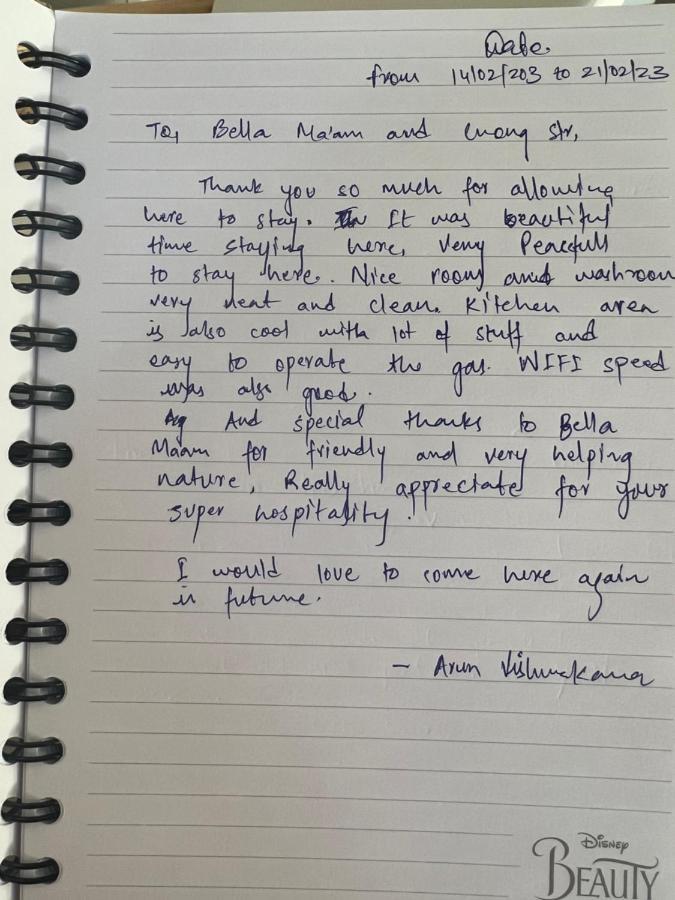 Date.
from 14/02/203 to 21/02/23
To, Bella Ma'am and Cuong Sir,
Thank you so much for allowing
here to stay. It was beautiful
time staying here, very Peacefull
to stay here. Nice room and washroom
very neat and clean. Kitchen area
is also cool with lot of stuff and
easy to operate the gas. WIFI speed
was also good.
And special thanks to Bella
Maam for friendly and very helping
nature, Really appreciate for your
super hospitality.
I would love to come here again
in future.
- Arun Vishwakarma
Disney
BEAUTY